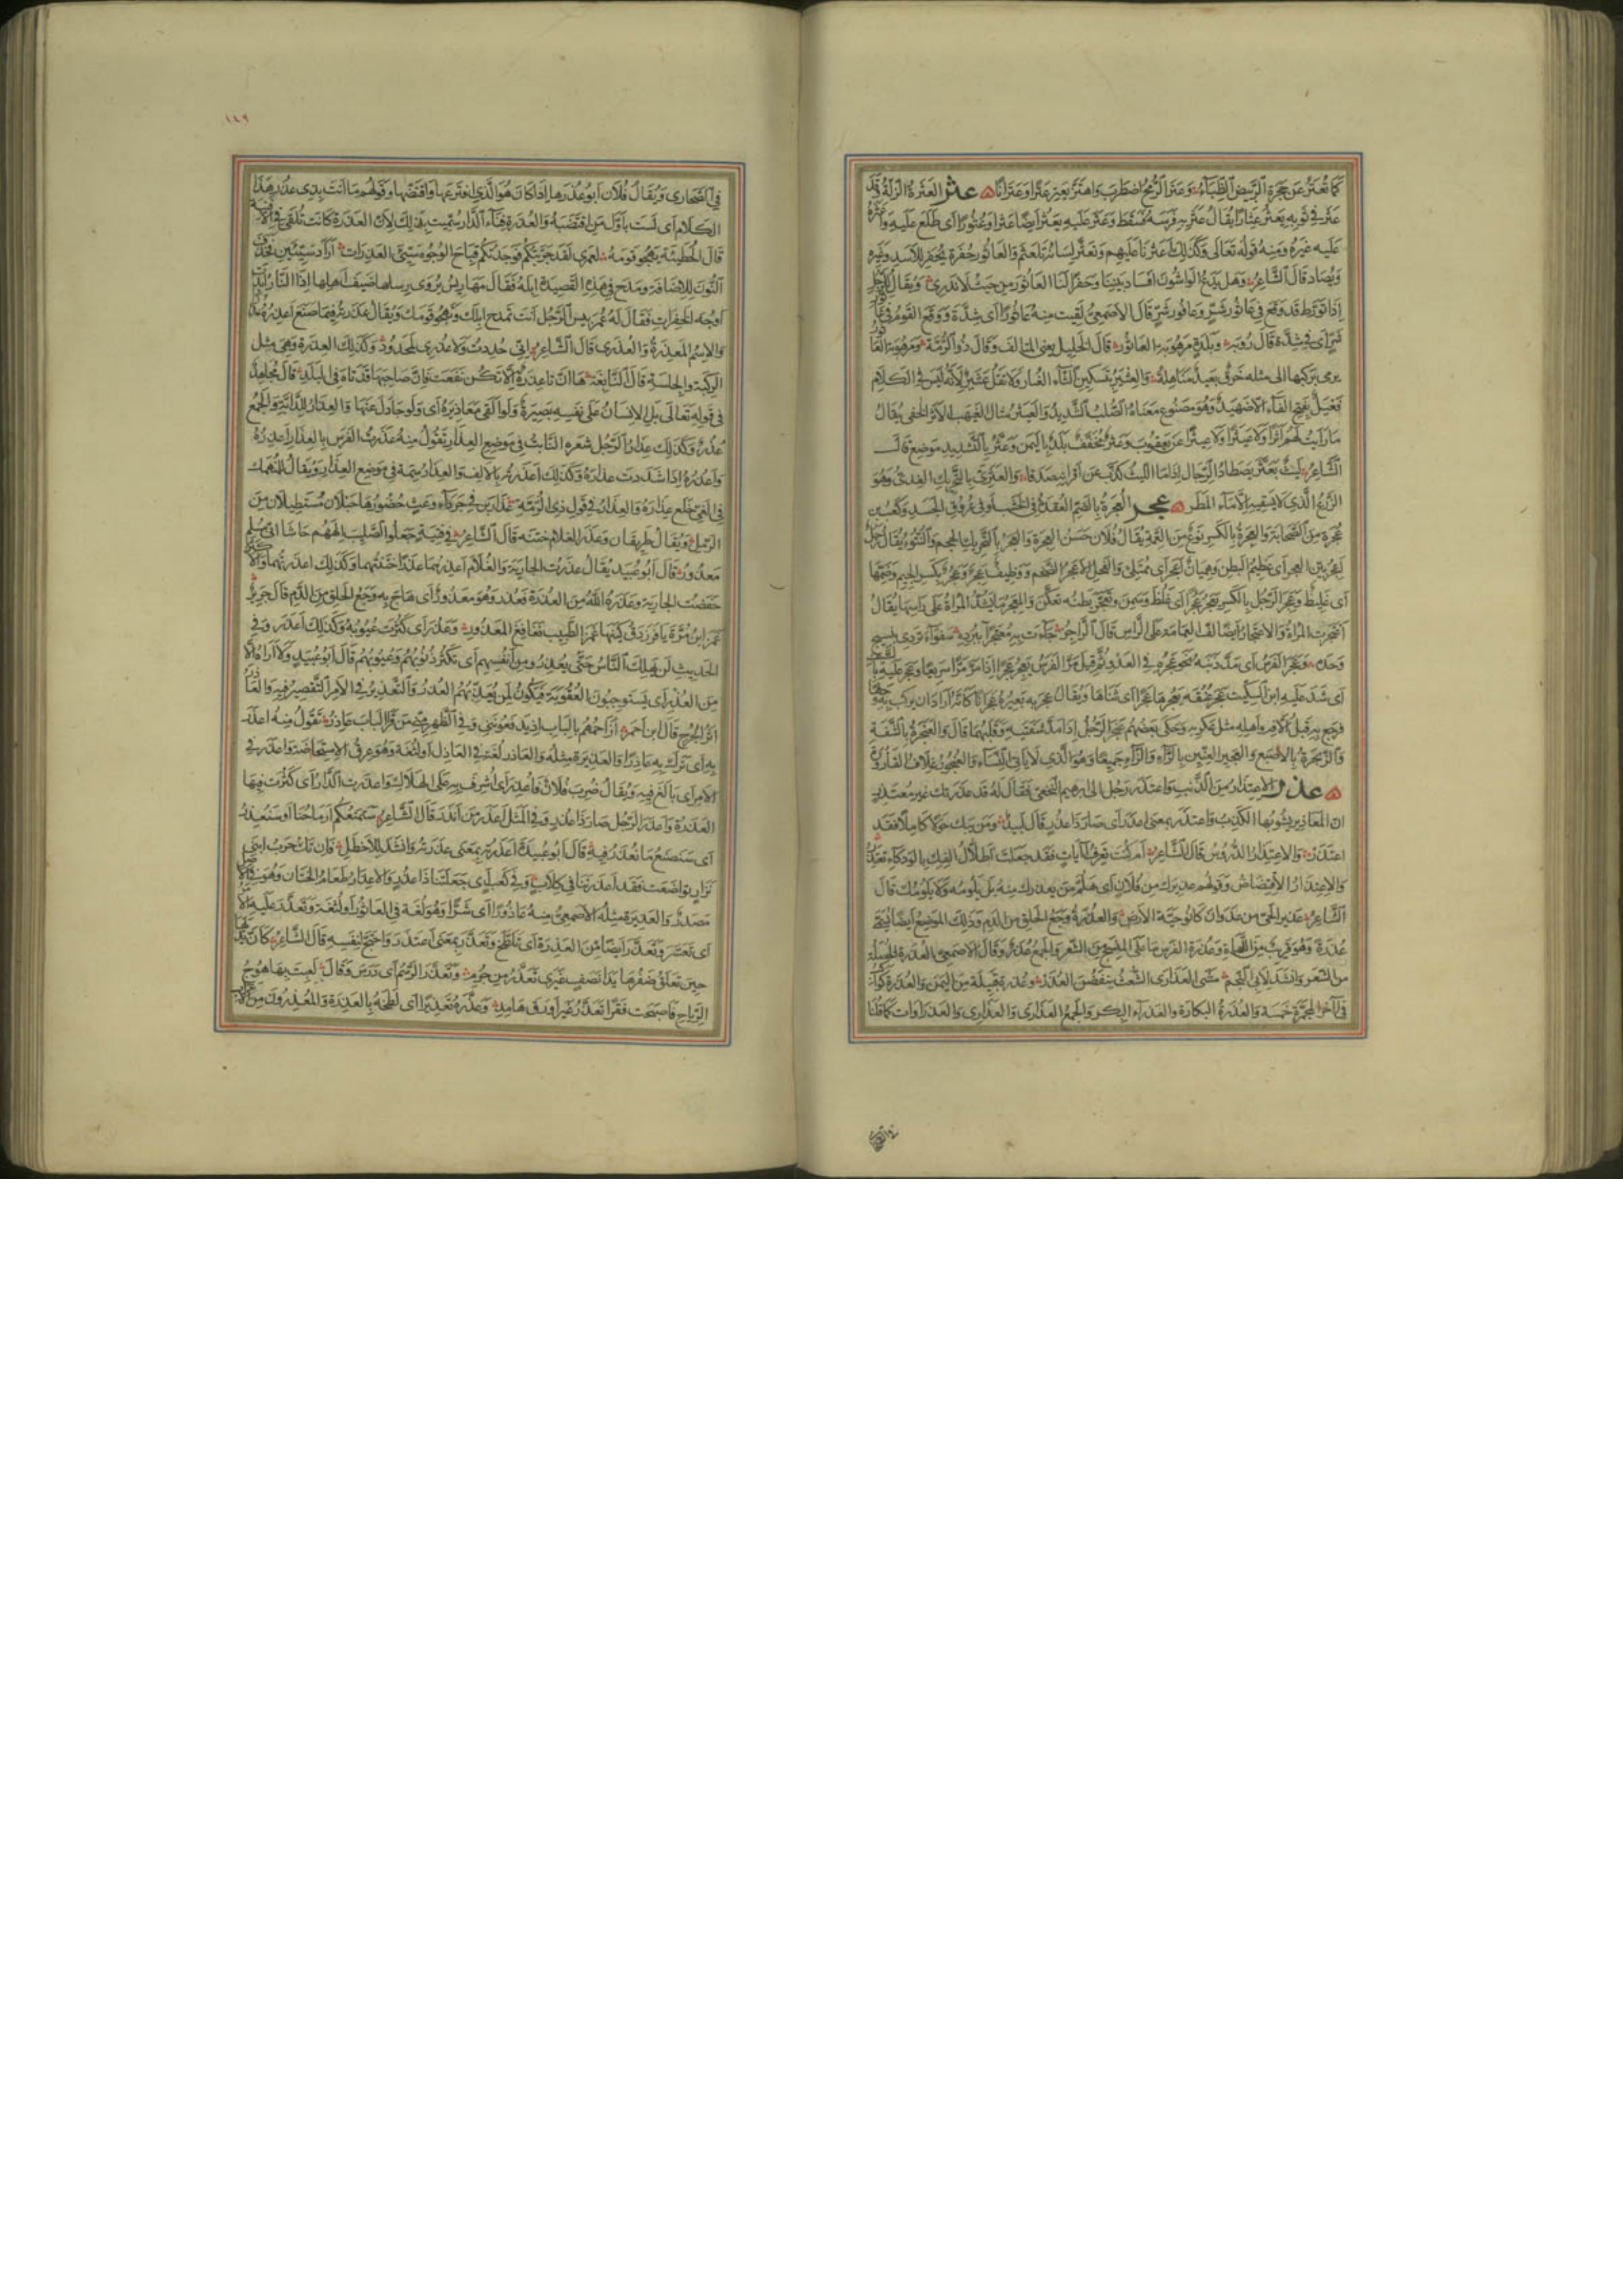 كما تعتر عن حجرة الربيض الظباء وعتر الرمح اضطرب واهتز يعتر عترا وعترانا عثر العثرة الزلة وقد
عثر في ثوبه يعثر عثارا يقال عثر به فرسه فسقط وعثر عليه يعثر ايضا عثرا وعثورا اى طلع عليه واعثره
عليه غيره ومنه قوله تعالى وكذلك اعثرنا عليهم وتعثر لسانه تلعثم والعاثور حفرة تحفر للاسد وغيره
ويصاد قال الشاعر وهل يدع الواشون افساد بيننا وحفرا لنا العاثور من حيث لا ندرى ويقال للرجل
اذا تورط قد وقع في عاثور شر وعافور شر قال الاصمعى لقيت منه عاثورا اى شدة ووقع القوم في عاثور
شر اى في شدة قال رؤبة وبلدة مرهوبة العاثور قال الخليل يعنى المتالف وقال ذو الرمة ومرهوبة العاثور
يرمى بركبها الى مثله خوف بعيد مناهله والعثير بتسكين الثاء الغبار ولا تقل عثير لانه ليس في الكلام
فعيل بفتح الفاء الا ضهيد وهو مصنوع معناه الصلب الشديد والعيثر مثال الغيهب الاثر الخفى يقال
ما رايت لهم اثرا ولا عيثرا ولا عثيرا عن يعقوب وعثر مخفف بلد باليمن وعثر بالتشديد موضع قال
الشاعر ليث بعثر يصطاد الرجال اذا ما الليث كذب عن اقرانه صدقا والعثرى بالتحريك العذى وهو
الزرع الذى لا يسقيه الا ماء المطر عجر العجرة بالضم العقدة في الخشب او في عروق الجسد وكعب بن
عجرة من الصحابة والعجرة بالكسر نوع من العمة يقال فلان حسن العجرة والعجر بالتحريك الحجم والنتوء يقال رجل
اعجر بين العجر اى عظيم البطن وهميان اعجر اى ممتلئ والفحل الاعجر الضخم ووظيف عجر وعجر بكسر الجيم وضمها
اى غليظ وعجر الرجل بالكسر يعجر عجرا اى غلظ وسمن وتعجر بطنه تعكن والمعجر ما يشده المراة على راسها يقال
اعتجرت المراة والاعتجار ايضا لف العمامة على الراس قال الراجز جاءت به معتجرا ببرده سفواء تردى بنسيج
وحده وعجر الفرس اى مد ذنبه نحو عجزه في العدو ثم قيل مر الفرس يعجر عجرا اذا مر مرا سريعا وعجر عليه بالسيف
اى شد عليه ابن السكيت عجر عنقه يعجرها عجرا اى ثناها ويقال عجر به بعيره عجرانا كانه اراد ان يركب به وجها
فرجع به قبل الافه واهله مثل عكر به وحكى بعضهم عنجر الرجل اذا مد شفتيه وقلبهما قال والعنجرة بالشفة
والزنجرة بالاصبع والعجير العنين بالراء والزاء جميعا وهو الذى لا ياتى النساء والعنجورة غلاف القارورة
عذر الاعتذار من الذنب واعتذر رجل الى ابرهيم النخعى فقال له قد عذرتك غير معتذر
ان المعاذير يشوبها الكذب واعتذر بمعنى اعذر اى صار ذا عذر قال لبيد ومن يبك حولا كاملا فقد
اعتذر والاعتذار الدروس قال الشاعر ام كنت تعرف ايات فقد جعلت اطلال الفك بالودكاء تعتذر
والاعتذار الاقتضاض وقولهم عذيرك من فلان اى هلم من يعذرك منه بل يلومه ولا يلومك قال
الشاعر عذير الحى من عدوان كانوا حية الارض والعذرة وجع الحلق من الدم وذلك الموضع ايضا يسمى
عذرة وهو قريب من اللهاة وعذرة الفرس ما على المنسج من الشعر والجمع عذر وقال الاصمعى العذرة الخصلة
من الشعر وانشد لابى النجم مشى العذارى الشعث ينفضن العذر وعذرة قبيلة من اليمن والعذرة كواكب
في اخر المجرة خمسة والعذرة البكارة والعذراء البكر والجمع العذارى والعذارى والعذراوات كما قلنا
١٤٩
في الصحارى ويقال فلان ابو عذرها اذا كان هو الذى افترعها واقتضها وقولهم ما انت بذى عذر هذا
الكلام اى لست باول من اقتضبه والعذرة فناء الدار سميت بذلك لان العذرة كانت تلقى في الافنية
قال الحطيئة يهجو قومه لعمرى لقد جربتكم فوجدتكم قباح الوجوه سيئى العذرات اراد سيئين فحذف
النون للاضافة ومدح في هذه القصيدة ابله فقال مهاريس يروى رسلها ضيف اهلها اذا النار ابدت
اوجه الخفرات فقال له عمر بئس الرجل انت تمدح ابلك وتهجو قومك ويقال عذرته فيما صنع اعذره عذرا
والاسم المعذرة والعذرى قال الشاعر انى حددت ولا عذرى لمحدود وكذلك العذرة وهى مثل
الركبة والجلسة قال النابغة ها ان تا عذرة الا تكن نفعت فان صاحبها قد تاه في البلد قال مجاهد
في قوله تعالى بل الانسان على نفسه بصيرة ولو القى معاذيره اى ولو جادل عنها والعذار للدابة والجمع
عذر وكذلك عذار الرجل شعره النابت في موضع العذار تقول منه عذرت الفرس بالعذار اعذره
واعذره اذا شددت عذاره وكذلك اعذرته بالالف والعذار سمة في موضع العذار ويقال للمنهمك
في الغى خلع عذاره والعذار في قول ذى الرمة عذارين في جرداء وعث خصورها حبلان مستطيلان من
الرمل ويقال طريقان وعذر الغلام ختنه قال الشاعر في فتية جعلوا الصليب الههم حاشا انى مسلم
معذور قال ابو عبيد يقال عذرت الجارية والغلام اعذرهما عذرا ختنتهما وكذلك اعذرتهما والاكثر
خفضت الجارية وعذره الله من العذرة فعذر وهو معذور اى هاج به وجع الحلق من الدم قال جرير
غمز ابن مرة يا فرزدق كينها غمز الطبيب نغانغ المعذور وعذر اى كثرت عيوبه وكذلك اعذر وفي
الحديث لن يهلك الناس حتى يعذروا من انفسهم اى تكثر ذنوبهم وعيوبهم قال ابو عبيد ولا اراه الا
من العذر اى يستوجبون العقوبة فيكون لمن يعذبهم العذر والتعذير في الامر التقصير فيه والعاذر
اثر الجرح قال ابن احمر ازاحمهم بالباب اذ يدفعوننى وفي الظهر منى من قرا الباب عاذر تقول منه اعذر
به اى ترك به عاذرا والعذيرة مثله والعاذر لغة في العاذل او لثغة وهو عرق الاستحاضة واعذر في
الامر اى بالغ فيه ويقال ضرب فلان فاعذر اى اشرف به على الهلاك واعذرت الدار اى كثرت فيها
العذرة واعذر الرجل صار ذا عذر وفي المثل اعذر من انذر قال الشاعر ستمنعكم ارماحنا او سنعذر
اى سنصنع ما نعذر فيه قال ابو عبيدة اعذرته بمعنى عذرته وانشد للاخطل فان تك حرب ابنى
نزار تواضعت فقد اعذرتنا في كلاب وفي كعب اى جعلتنا ذا عذر والاعذار طعام الختان وهو في الاصل
مصدر والعذيرة مثله الاصمعى لقيت منه عاذورا اى شرا وهو لغة في العاثور او لثغة وتعذر عليه الامر
اى تعسر وتعذر ايضا من العذرة اى تلطخ وتعذر بمعنى اعتذر واحتج لنفسه قال الشاعر كان يديها
حين تعلق ضفرها يدا نصف غيرى تعذر من جرم وتعذر الرسم اى درس وقال لعبت بها هوج
الرياح فاصبحت قفرا تعذر غير اورق هامد وعذره تعذيرا اى لطخه بالعذرة والمعذرون من الاعراب